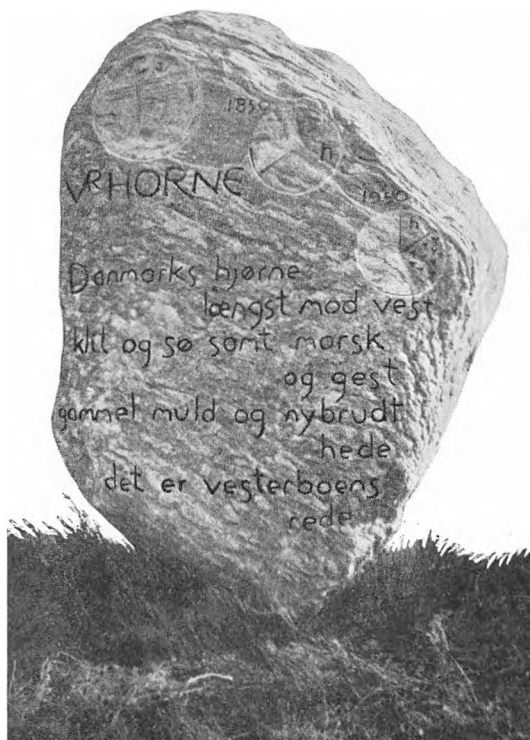 1850
h
VRHORNE
1950
h
Danmarks hjørne
længst mod vest
klit og sø samt marsk
og gest
gammel muld og nybrudt
hede
det er vesterboens
rede